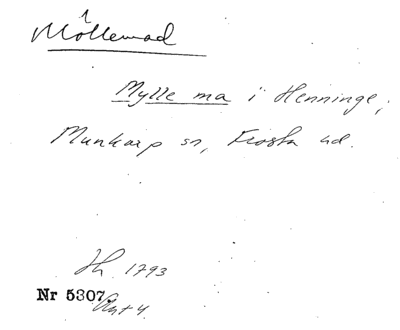 Möllemad
Mylle ma i Henninge,
Munkarp sn, Frosta hd.
Jh. 1793
Nr 5307 Akt 4